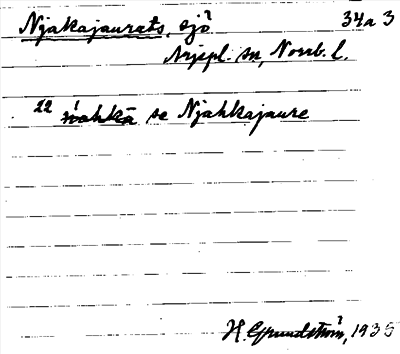 Njakajaurats, sjö 34a3
Arjepl. sn, Norrb. l.
22 se Njahkajaure
H. Grundström, 1935